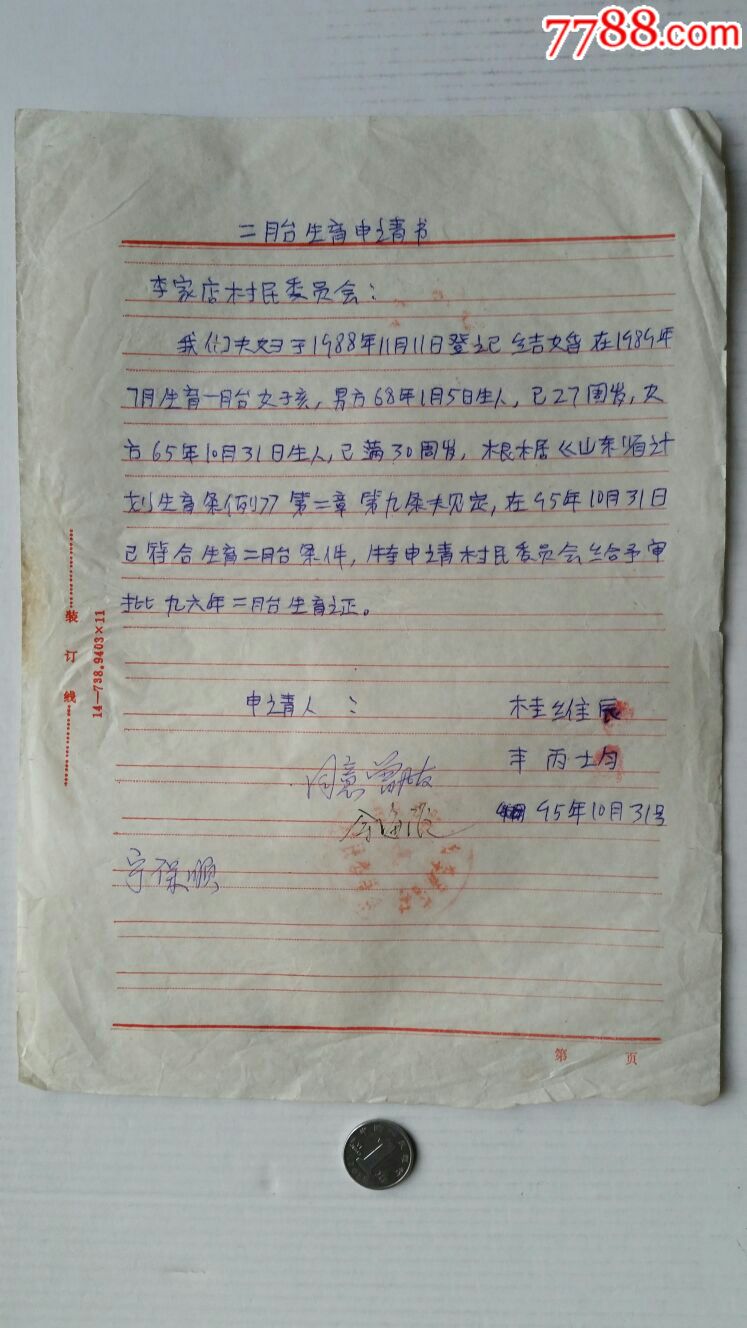 7788.com
二胎生育申请书
李家店村民委员会:
我们夫妇于1988年11月11日登记结婚在1989年
7月生育一胎女孩,男方68年1月5日生人,已27周岁,女
方65年10月31日生人,已满30周岁,根据《山东省计
划生育条例》第二章第九条规定,在95年10月31日
已符合生育二胎条件,特申请村民委员会给予审
批九六年二胎生育证。
申请人: 桂维辰
丰丙士均
同意
95年10月31号
宁保顺
装订线
14—738.9403×11
第 页
1